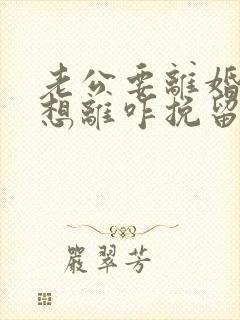 老公要離婚
想離咋挽留
嚴翠芳